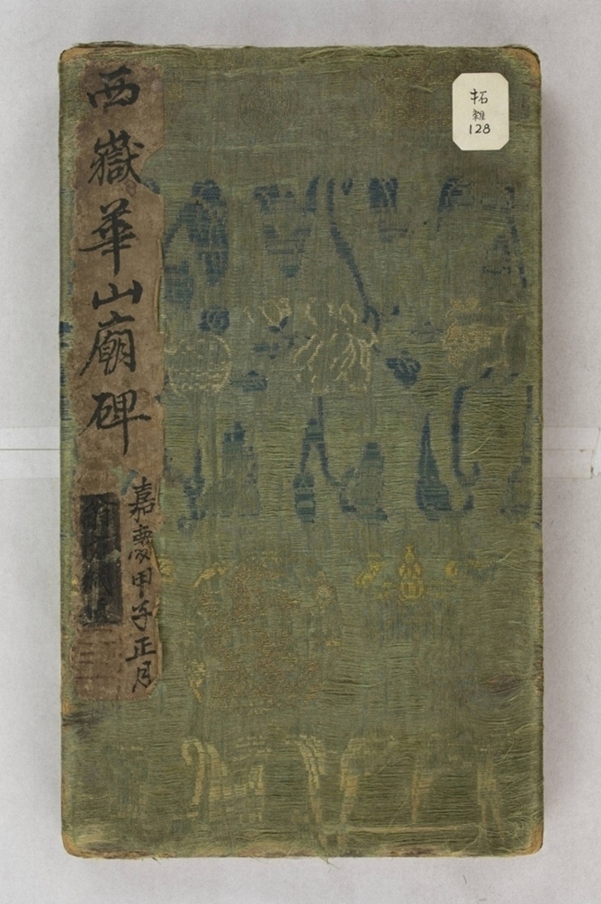 拓
雑
128
西嶽華山廟碑
嘉慶甲子正月